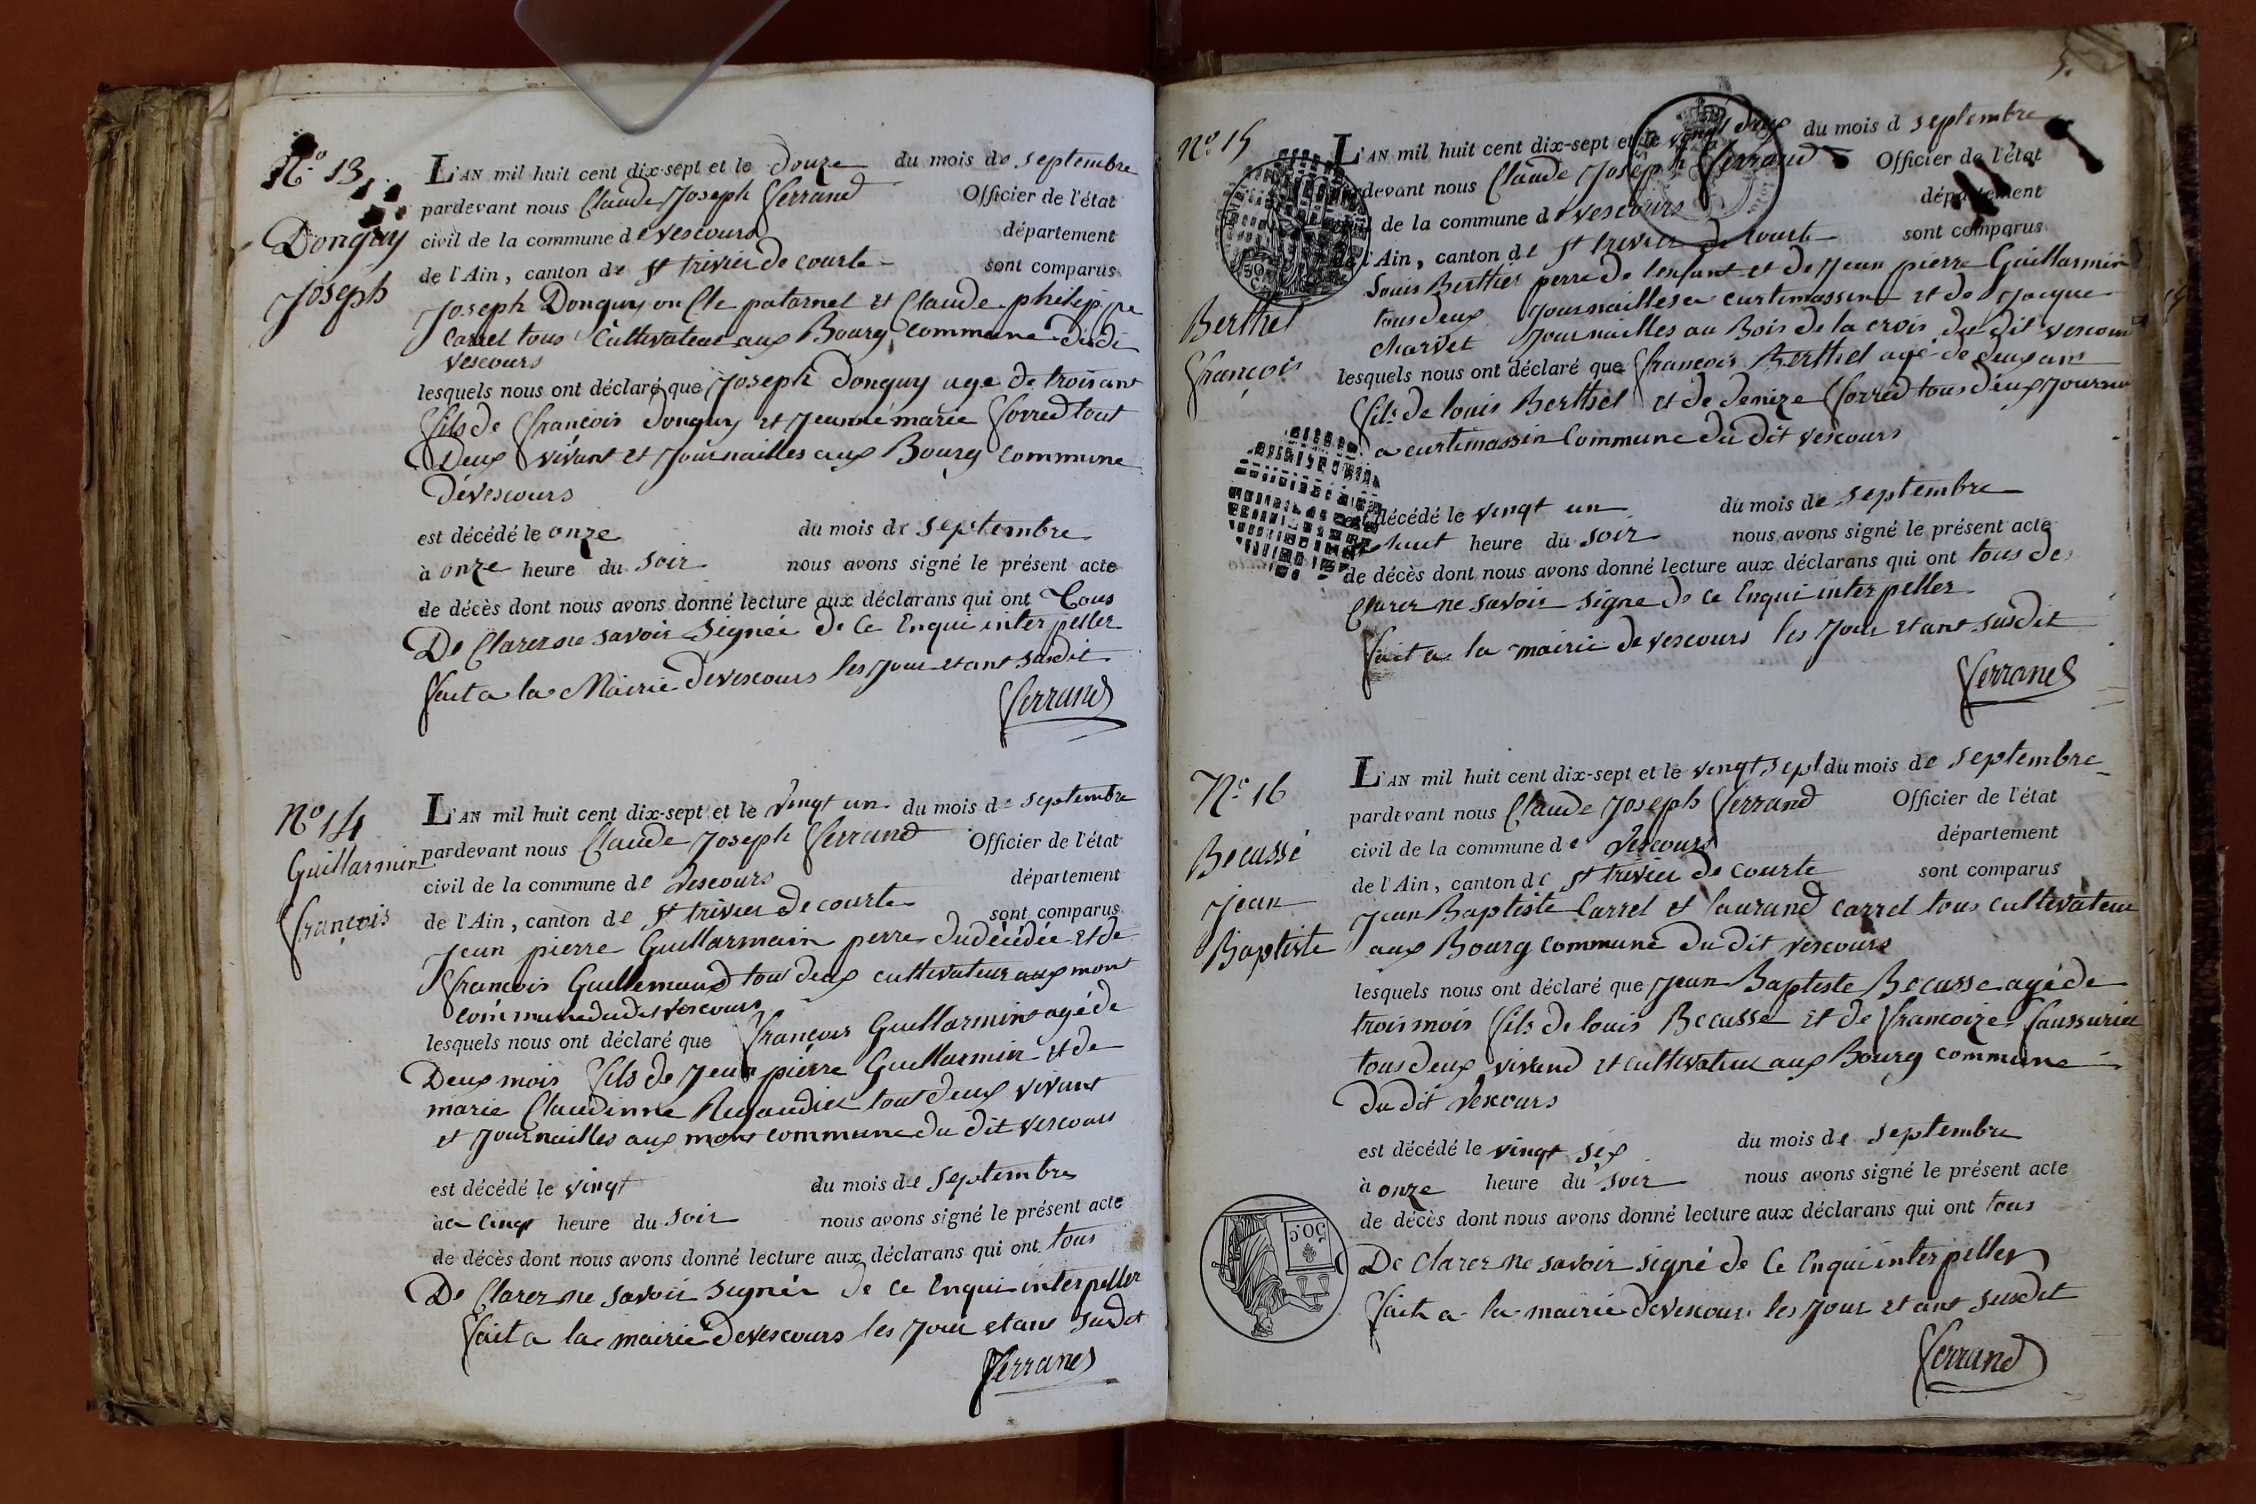 N.o 13
Donguy
Joseph
L'AN mil huit cent dix-sept et le douze du mois de septembre
pardevant nous Claude Joseph Ferrand Officier de l'état
civil de la commune de vescours département
de l'Ain, canton de st trivier de courte sont comparus
Joseph Donguy on Cle patarnel et Claude philippe
Carrel tous Cultivateur aux Bourg commune du di
vescours
lesquels nous ont déclaré que Joseph donguy age de trois ans
fils de françois donguy et Jeanne marie forred tout
Deux vivant et Journailles aux Bourg commune
devescours
est décédé le onze du mois de septembre
à onze heure du soir nous avons signé le présent acte
de décès dont nous avons donné lecture aux déclarans qui ont Tous
De Clarer ne savoir signée de ce Enqui inter peller
fait a la Mairie devescours les Jour et ans susdit
Ferrand
No 14
Guillarmin
françois
L'AN mil huit cent dix-sept et le vingt un du mois de septembre
pardevant nous Claude Joseph Ferrand Officier de l'état
civil de la commune de vescours département
de l'Ain, canton de st trivier de courte sont comparus
Jean pierre Guillarmain perre dudécédée et de
francois Guillemaud tout deux cultivateur aux mont
commune dudit vescours
lesquels nous ont déclaré que françois Guillarmin agé de
Deux mois fils de Jean pierre Guillarmin et de
marie Claudinne Rigaudier tout deux vivant
et Journailles aux mont commune du dit vescours
est décédé le vingt du mois de septembre
à cinq heure du soir nous avons signé le présent acte
de décès dont nous avons donné lecture aux déclarans qui ont tous
De Clarer ne savoir signée de ce Enqui inter peller
fait a la mairie devescours les Jour et ans susdit
Ferrand
5.
No 15
Berthet
françois
L'AN mil huit cent dix-sept et le vingt deux du mois d septembre
pardevant nous Claude Joseph Ferrand Officier de l'état
civil de la commune de vescours département
de l'Ain, canton de st trivier de courte sont comparus
Louis Berthet perre de lenfant et de Jean pierre Guillarmin
tous deux Journailles a curtimassin et de Jacque
charvet Journailles au Bois de la crois du dit vescours
lesquels nous ont déclaré que françois Berthet agé de deux ans
fils de louis Berthet et de denize forred tous deux Journa
a curtimassin Commune du dit vescours
est décédé le vingt un du mois de septembre
huit heure du soir nous avons signé le présent acte
de décès dont nous avons donné lecture aux déclarans qui ont tous de
Clarer ne savoir signe de ce Enqui inter peller
fait a la mairie de vescours les Jour et ans susdit
Ferrand
N.o 16
Becassé
jean
Baptiste
L'AN mil huit cent dix-sept et le vingt sept du mois de septembre
pardevant nous Claude Joseph Ferrand Officier de l'état
civil de la commune de vescours département
de l'Ain, canton de st trivier de courte sont comparus
Jean Baptiste Carrel et laurand carrel tous cultivateur
aux Bourg commune du dit vescours
lesquels nous ont déclaré que Jean Baptiste Becasse agé de
trois mois fils de louis Becasse et de francoize
tous deux vivand et cultivateur aux Bourg commune
du dit vescours
est décédé le vingt six du mois de septembre
à onze heure du soir nous avons signé le présent acte
de décès dont nous avons donné lecture aux déclarans qui ont tous
De Clarer ne savoir signé de Ce Enqui inter peller
fait a la mairie devescours les Jour et ans susdit
Ferrand
50 C